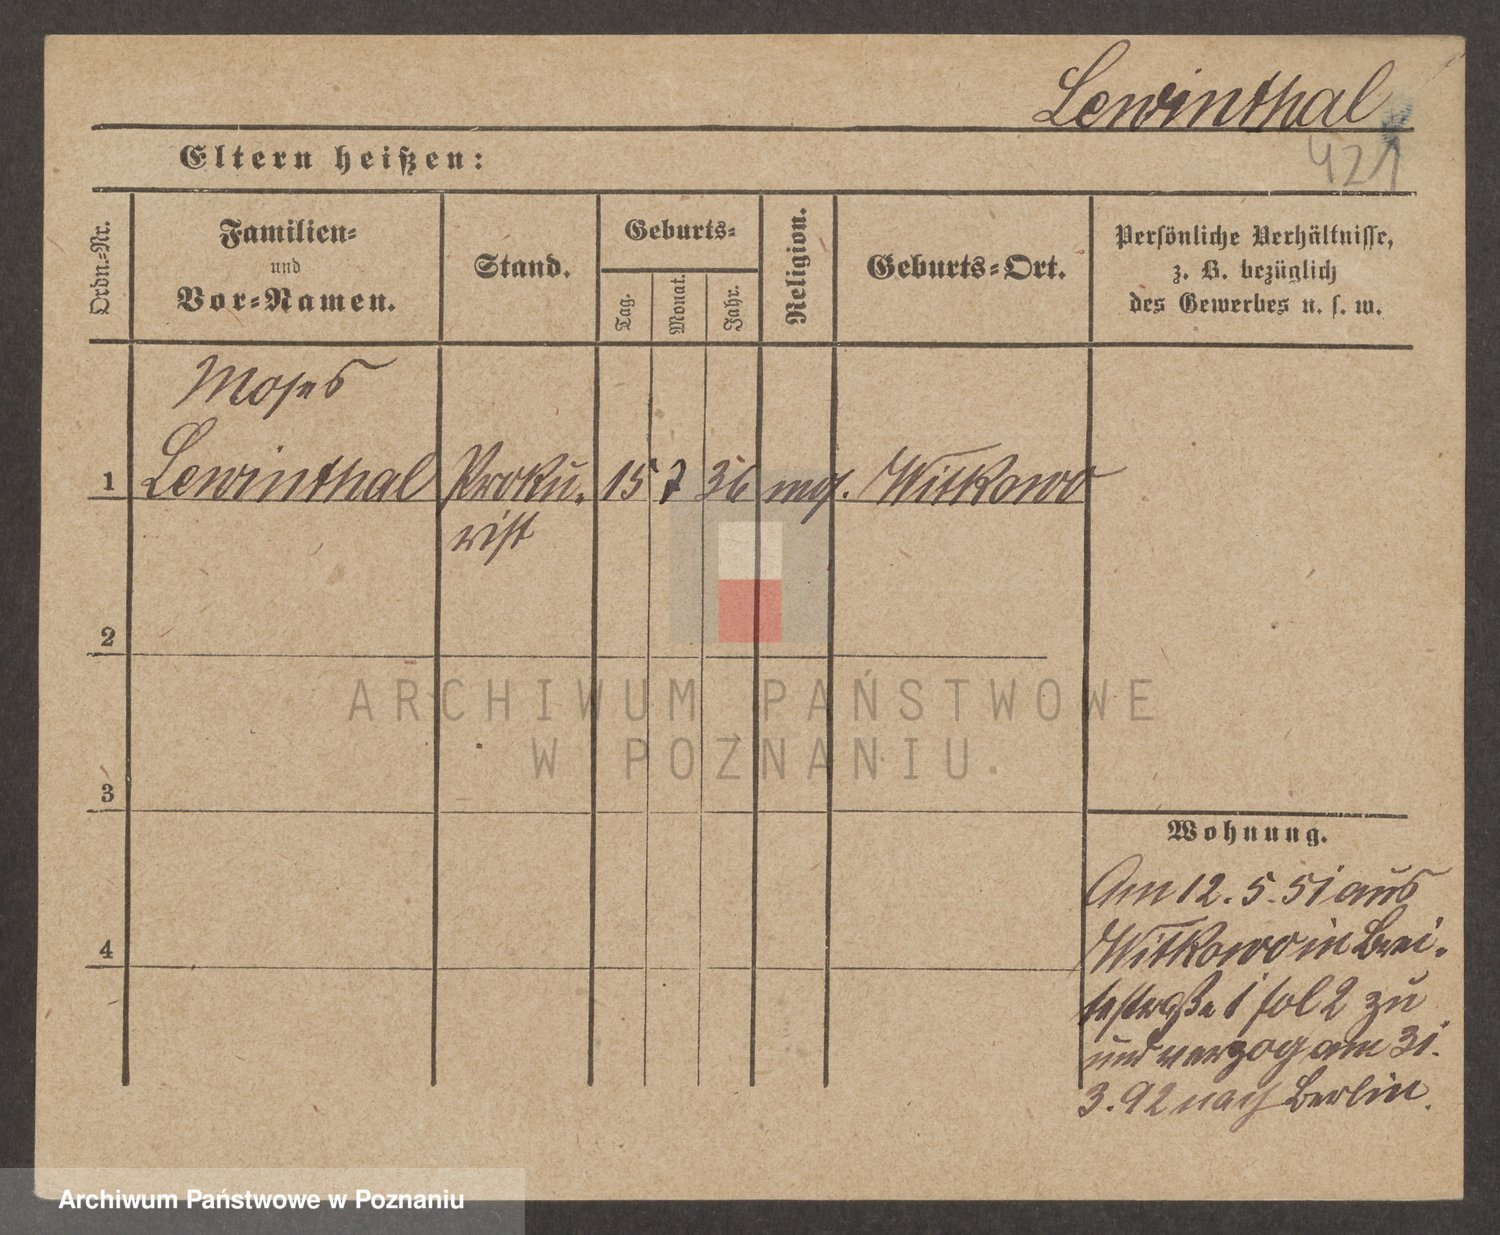 Lewinthal
421
Eltern heißen:
Ordn.-Nr.
Familien-
und
Vor-Namen.
Stand.
Geburts-
Tag.
Monat.
Jahr.
Religion.
Geburts-Ort.
Persönliche Verhältnisse,
z. B. bezüglich
des Gewerbes u. s. w.
Moses
1 Lewinthal Proku- 15 7 36 Witkowo
rist
2
ARCHIWUM PAŃSTWOWE
W POZNANIU
3
Wohnung.
Am 12. 5. 51 aus
4 Witkowo in Brei-
testraße 1 fol 2 zu
und verzog am 31.
3. 92 nach Berlin.
Archiwum Państwowe w Poznaniu